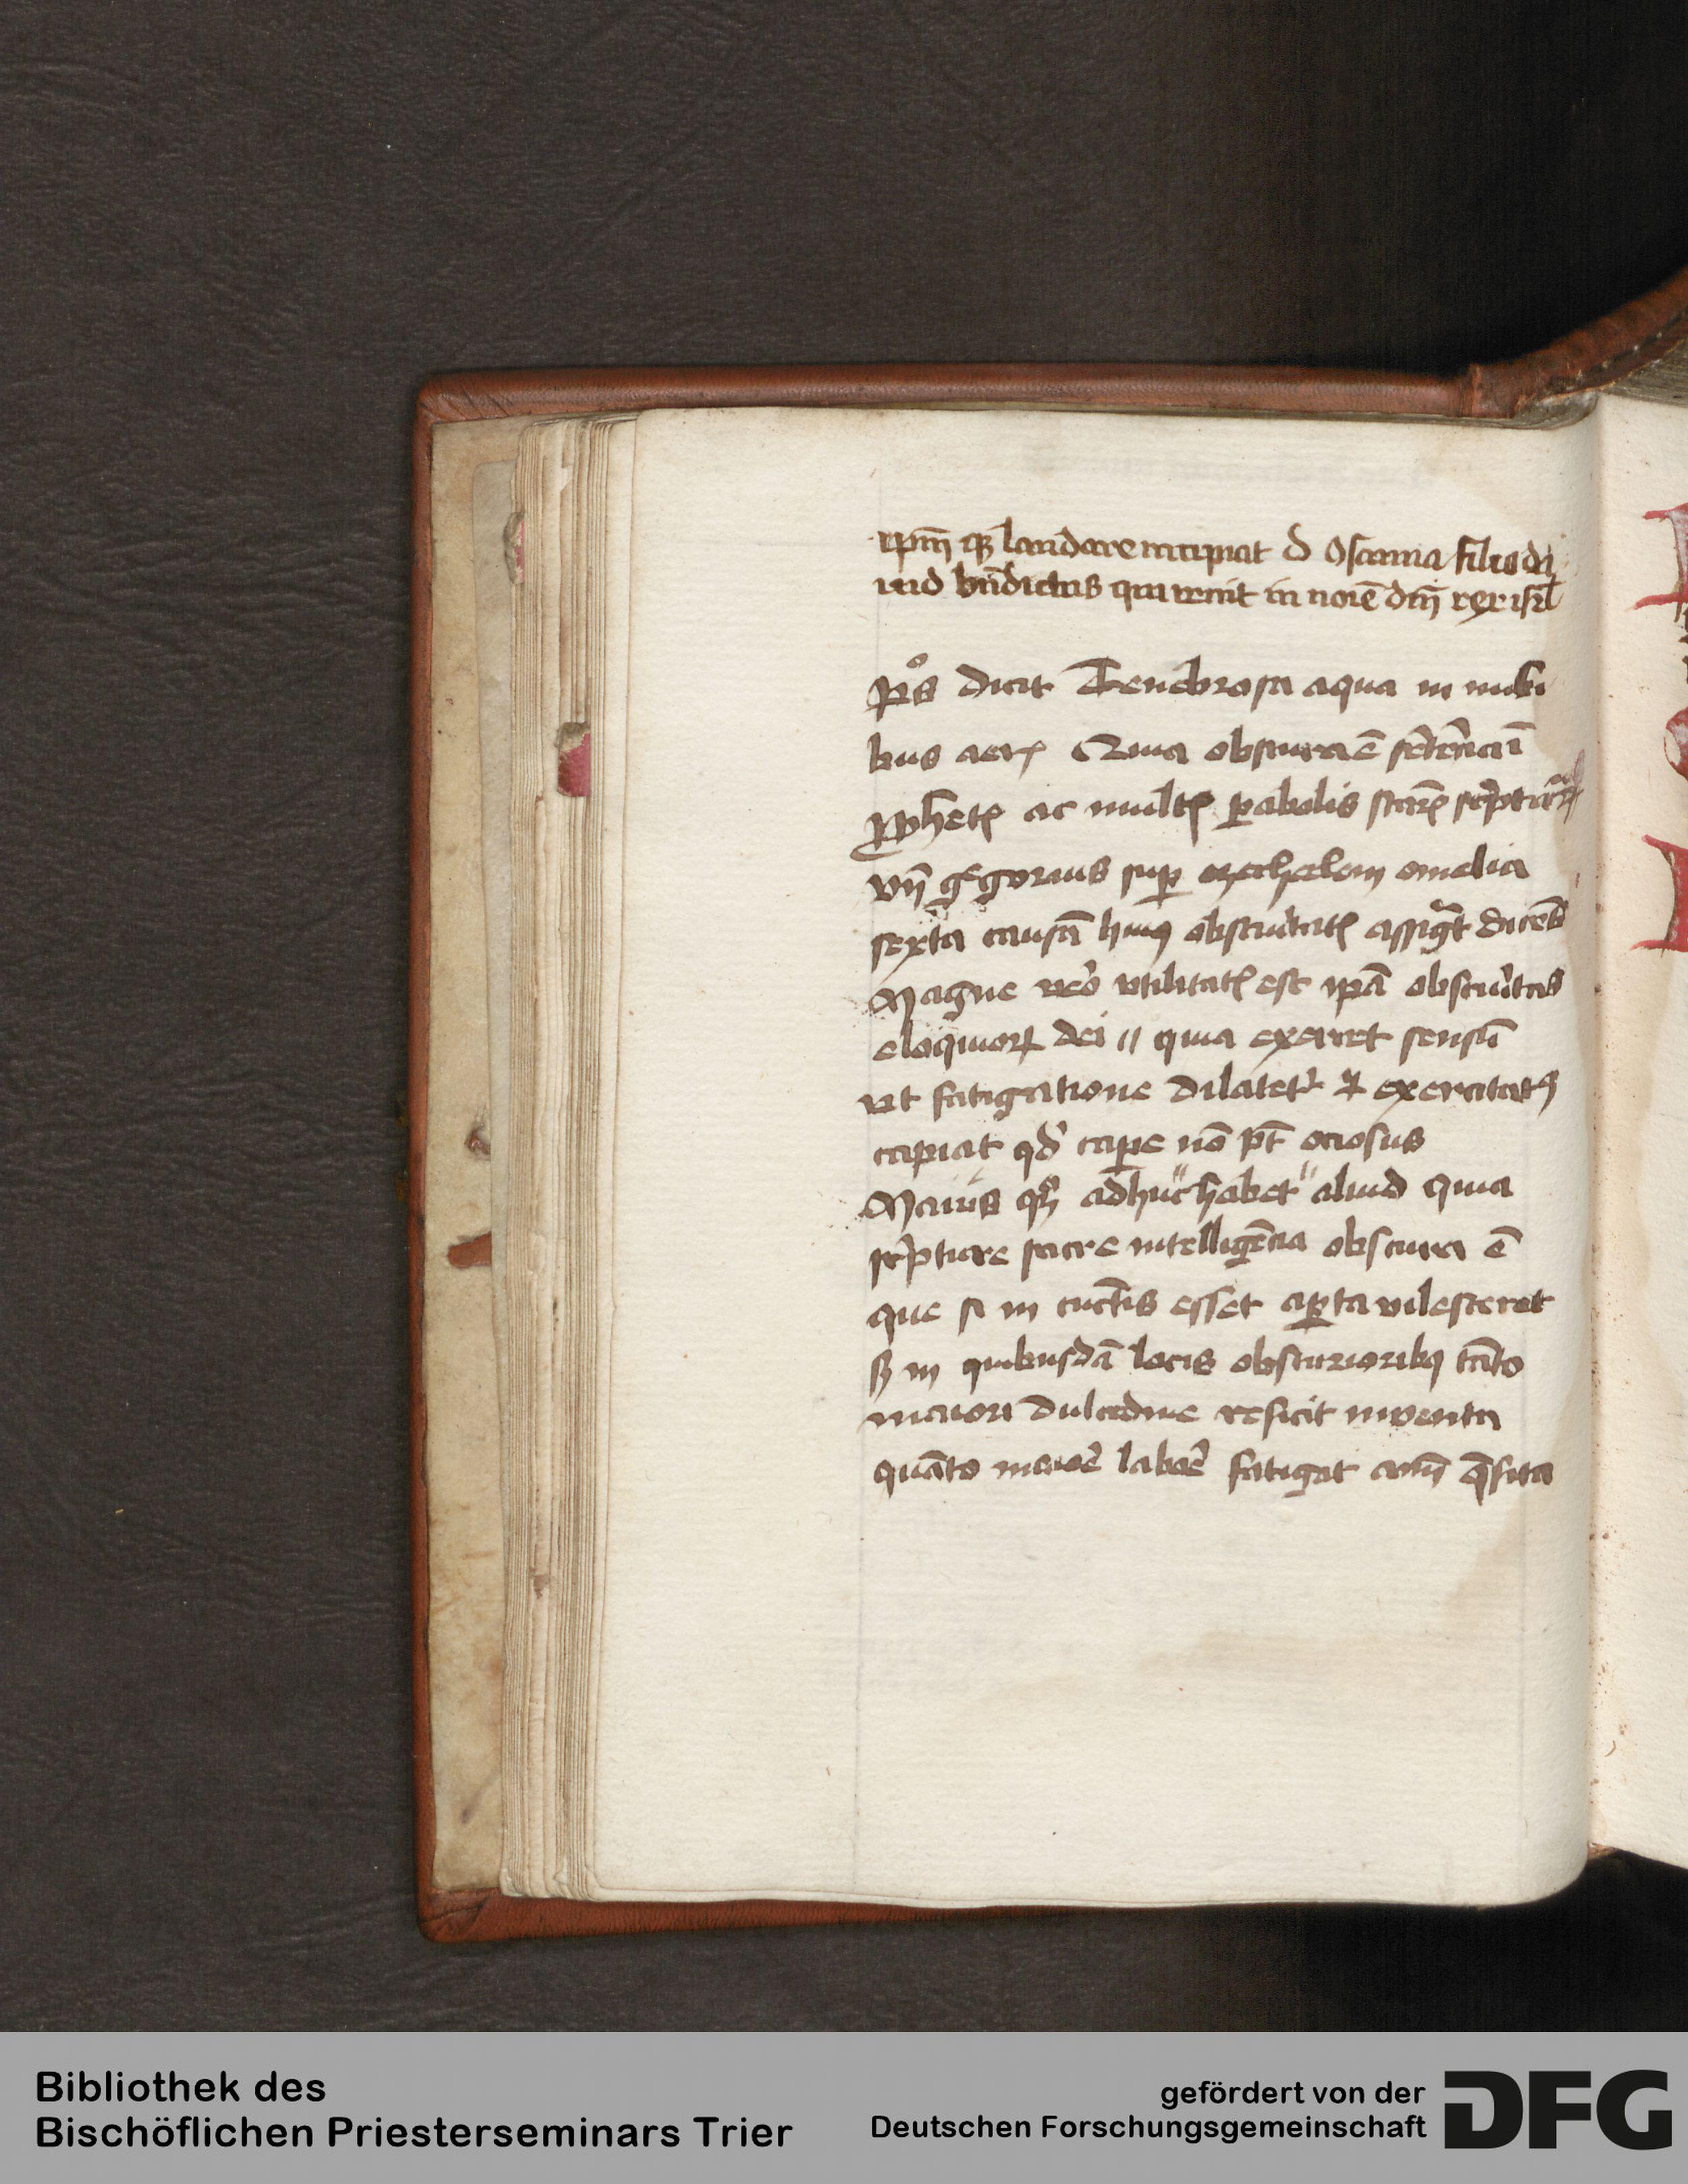 xpm̄ qꝫ laudare incipiat d Osanna filio da
uid bn̄dictus qui venit in noīe dm̄ rex isrl̄
Pº̄s dicit Tenebrosa aqua in nubi
bus aerꝭ Quia obscura ē sn̄tēncia ī
ꝓphetꝭ ac multꝭ ꝑabolis
vn̄ gͤgorius suꝑ ezechielem omelia
sexta causā huiꝰ obscuritatꝭ assigͣt dicēs
Magne veͦ vtilitatꝭ est ipā obscuͥtas
eloquioꝝ dei // quia exercet sensū
vt fatigatione dilatetͬ ⁊ exercitatꝰ
capiat qd̾ cape nō pt̄ ociosus
Maius qͦꝫ adhuc habet aliud quia
scͥpture sacre intelligēcia obscura ē
que si in cūctis esset aꝑta vilesceret
sꝫ in quibusdā locis obscurioribꝫ tāto
maiori dulcedine reficit inventa
quāto maioͤ laboͤ fatigat aīm̄ q̄sita
Bibliothek des
Bischöflichen Priesterseminars Trier
gefördert von der
Deutschen Forschungsgemeinschaft
DFG